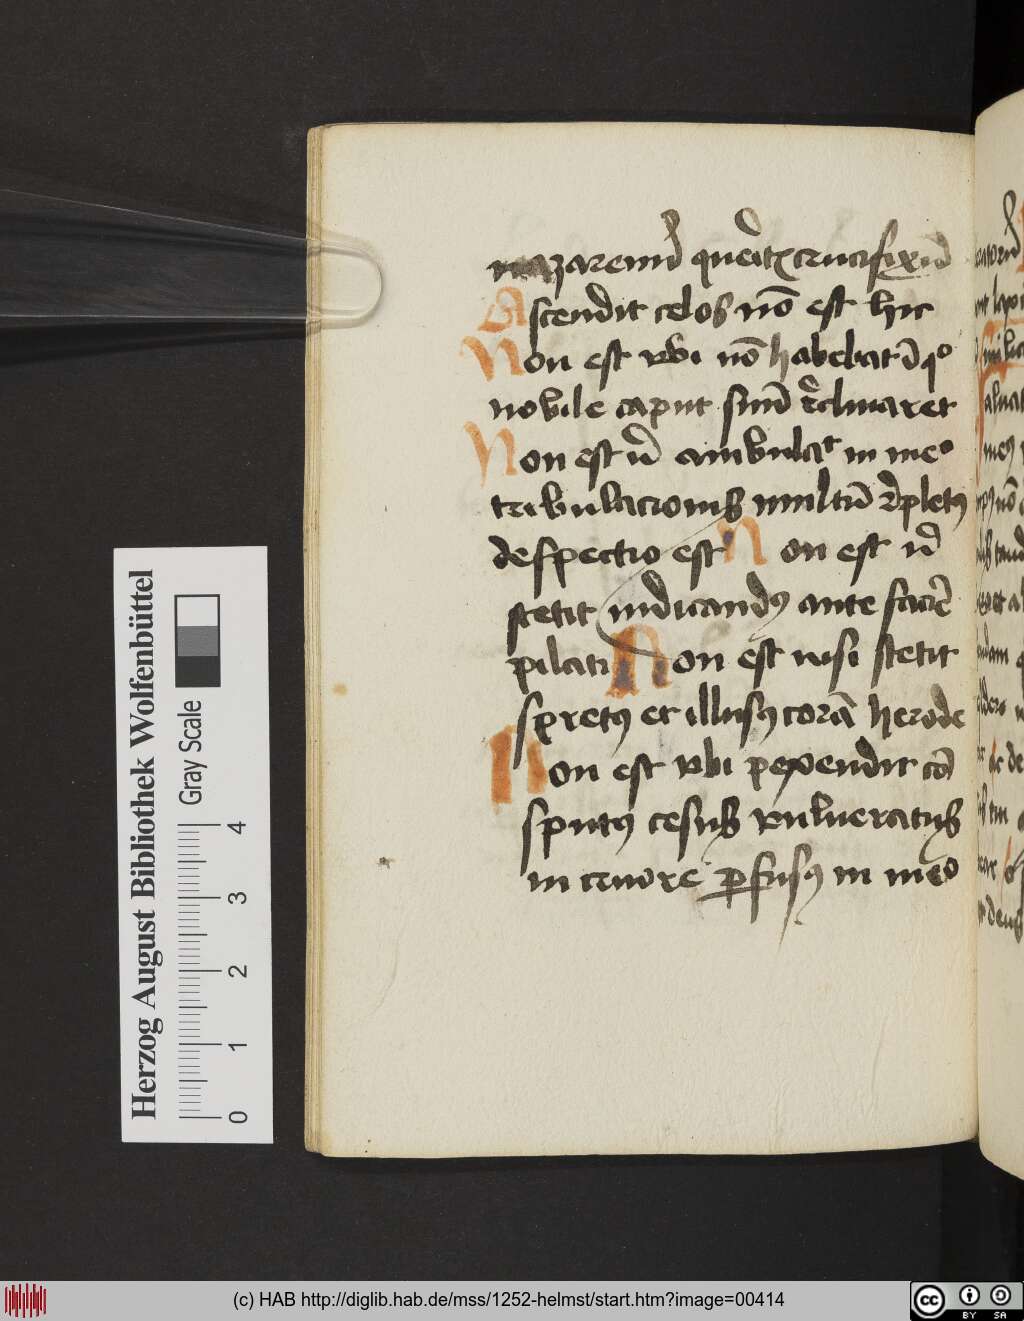 nazarenū queritis crucifixū
Ascendit celos nō est hic
Non est vbi nō habebat ī qͦ
nobile caput suū rēclinaret
Non est vͥ ambulat in meͦ
tribulacionis multū rēpletꝰ
despectio est Non est vͥ
stetit iudicandꝰ ante faciē
pilati Non est nisi stetit
spretꝰ et illusꝰ corā herode
Non est vbi pependit cō
sputꝰ cesus vulneratus
in cruore ꝑfusꝰ in meo
Herzog August Bibliothek Wolfenbüttel
Gray Scale
0 1 2 3 4
(c) HAB http://diglib.hab.de/mss/1252-helmst/start.htm?image=00414
cc BY SA